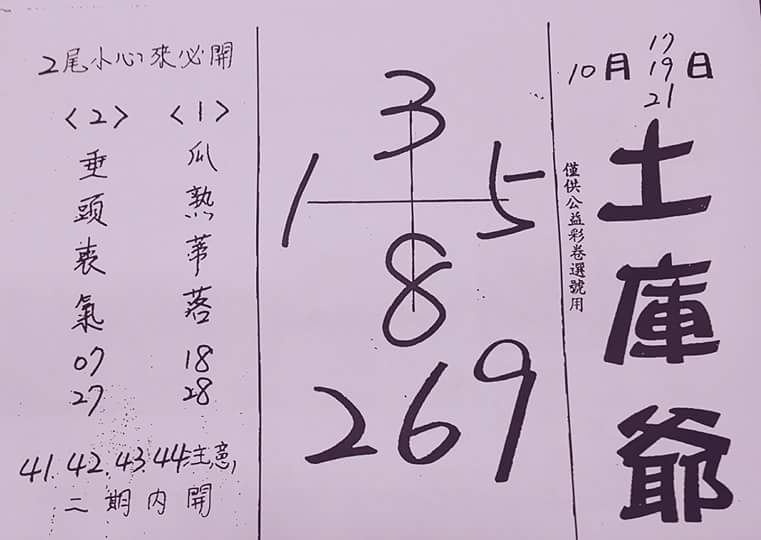 10月17 19 21日
土庫爺
僅供公益彩卷選號用
3
1 5
8
269
2尾小心來必開
〈1〉
瓜熟蒂落
18
28
〈2〉
垂頭丧氣
07
27
41.42.43.44注意,
二期内開